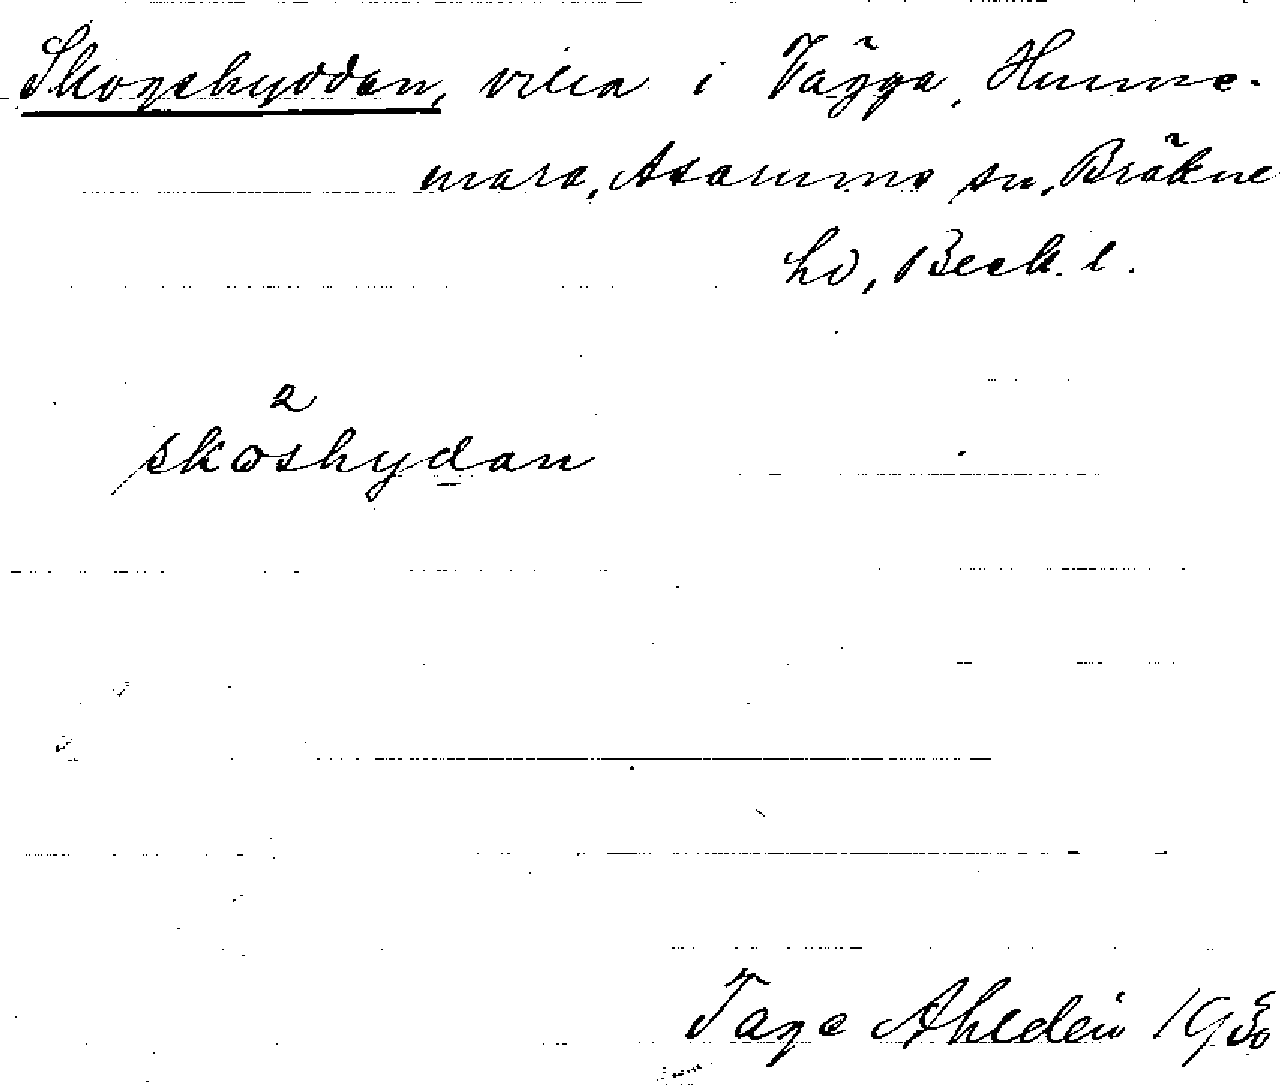 Skogshyddan, villa i Vägga, Hunne-
mara, Asarums sn, Bräkne
hd, Blek. l.
2
skoshydan
Tage Ahldén 1930